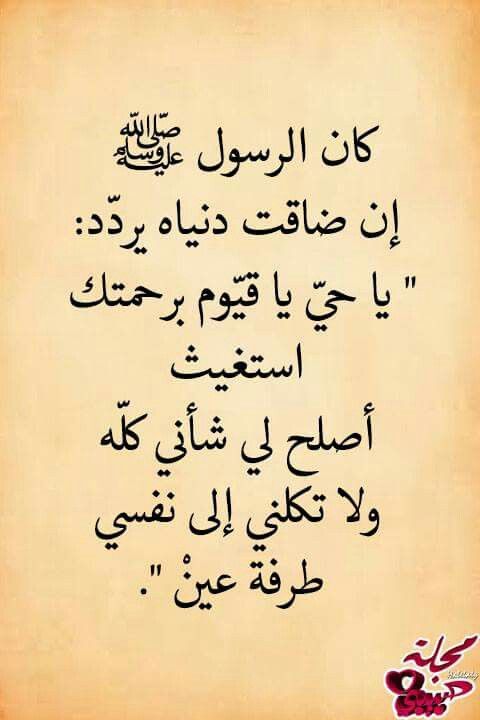 كان الرسول ﷺ
إن ضاقت دنياه يردّد:
" يا حيّ يا قيّوم برحمتك
استغيث
أصلح لي شأني كلّه
ولا تكلني إلى نفسي
طرفة عينْ ".
مجلة